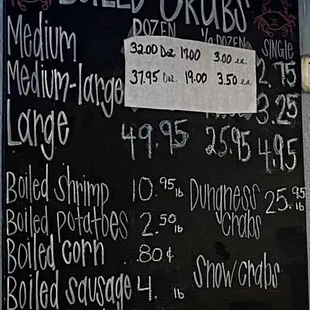 BOILED CRABS
DOZEN ½ DOZEN SINGLE
Medium 32.00 Doz 17.00 3.00 ea. 2.75
Medium-large 37.95 Doz. 19.00 3.50 ea. 3.25
Large 49.95 25.95 4.95
Boiled shrimp 10.95 lb Dungness crabs 25.95 lb
Boiled potatoes 2.50 lb
Boiled corn .80¢ Snow crabs
Boiled sausage 4. lb